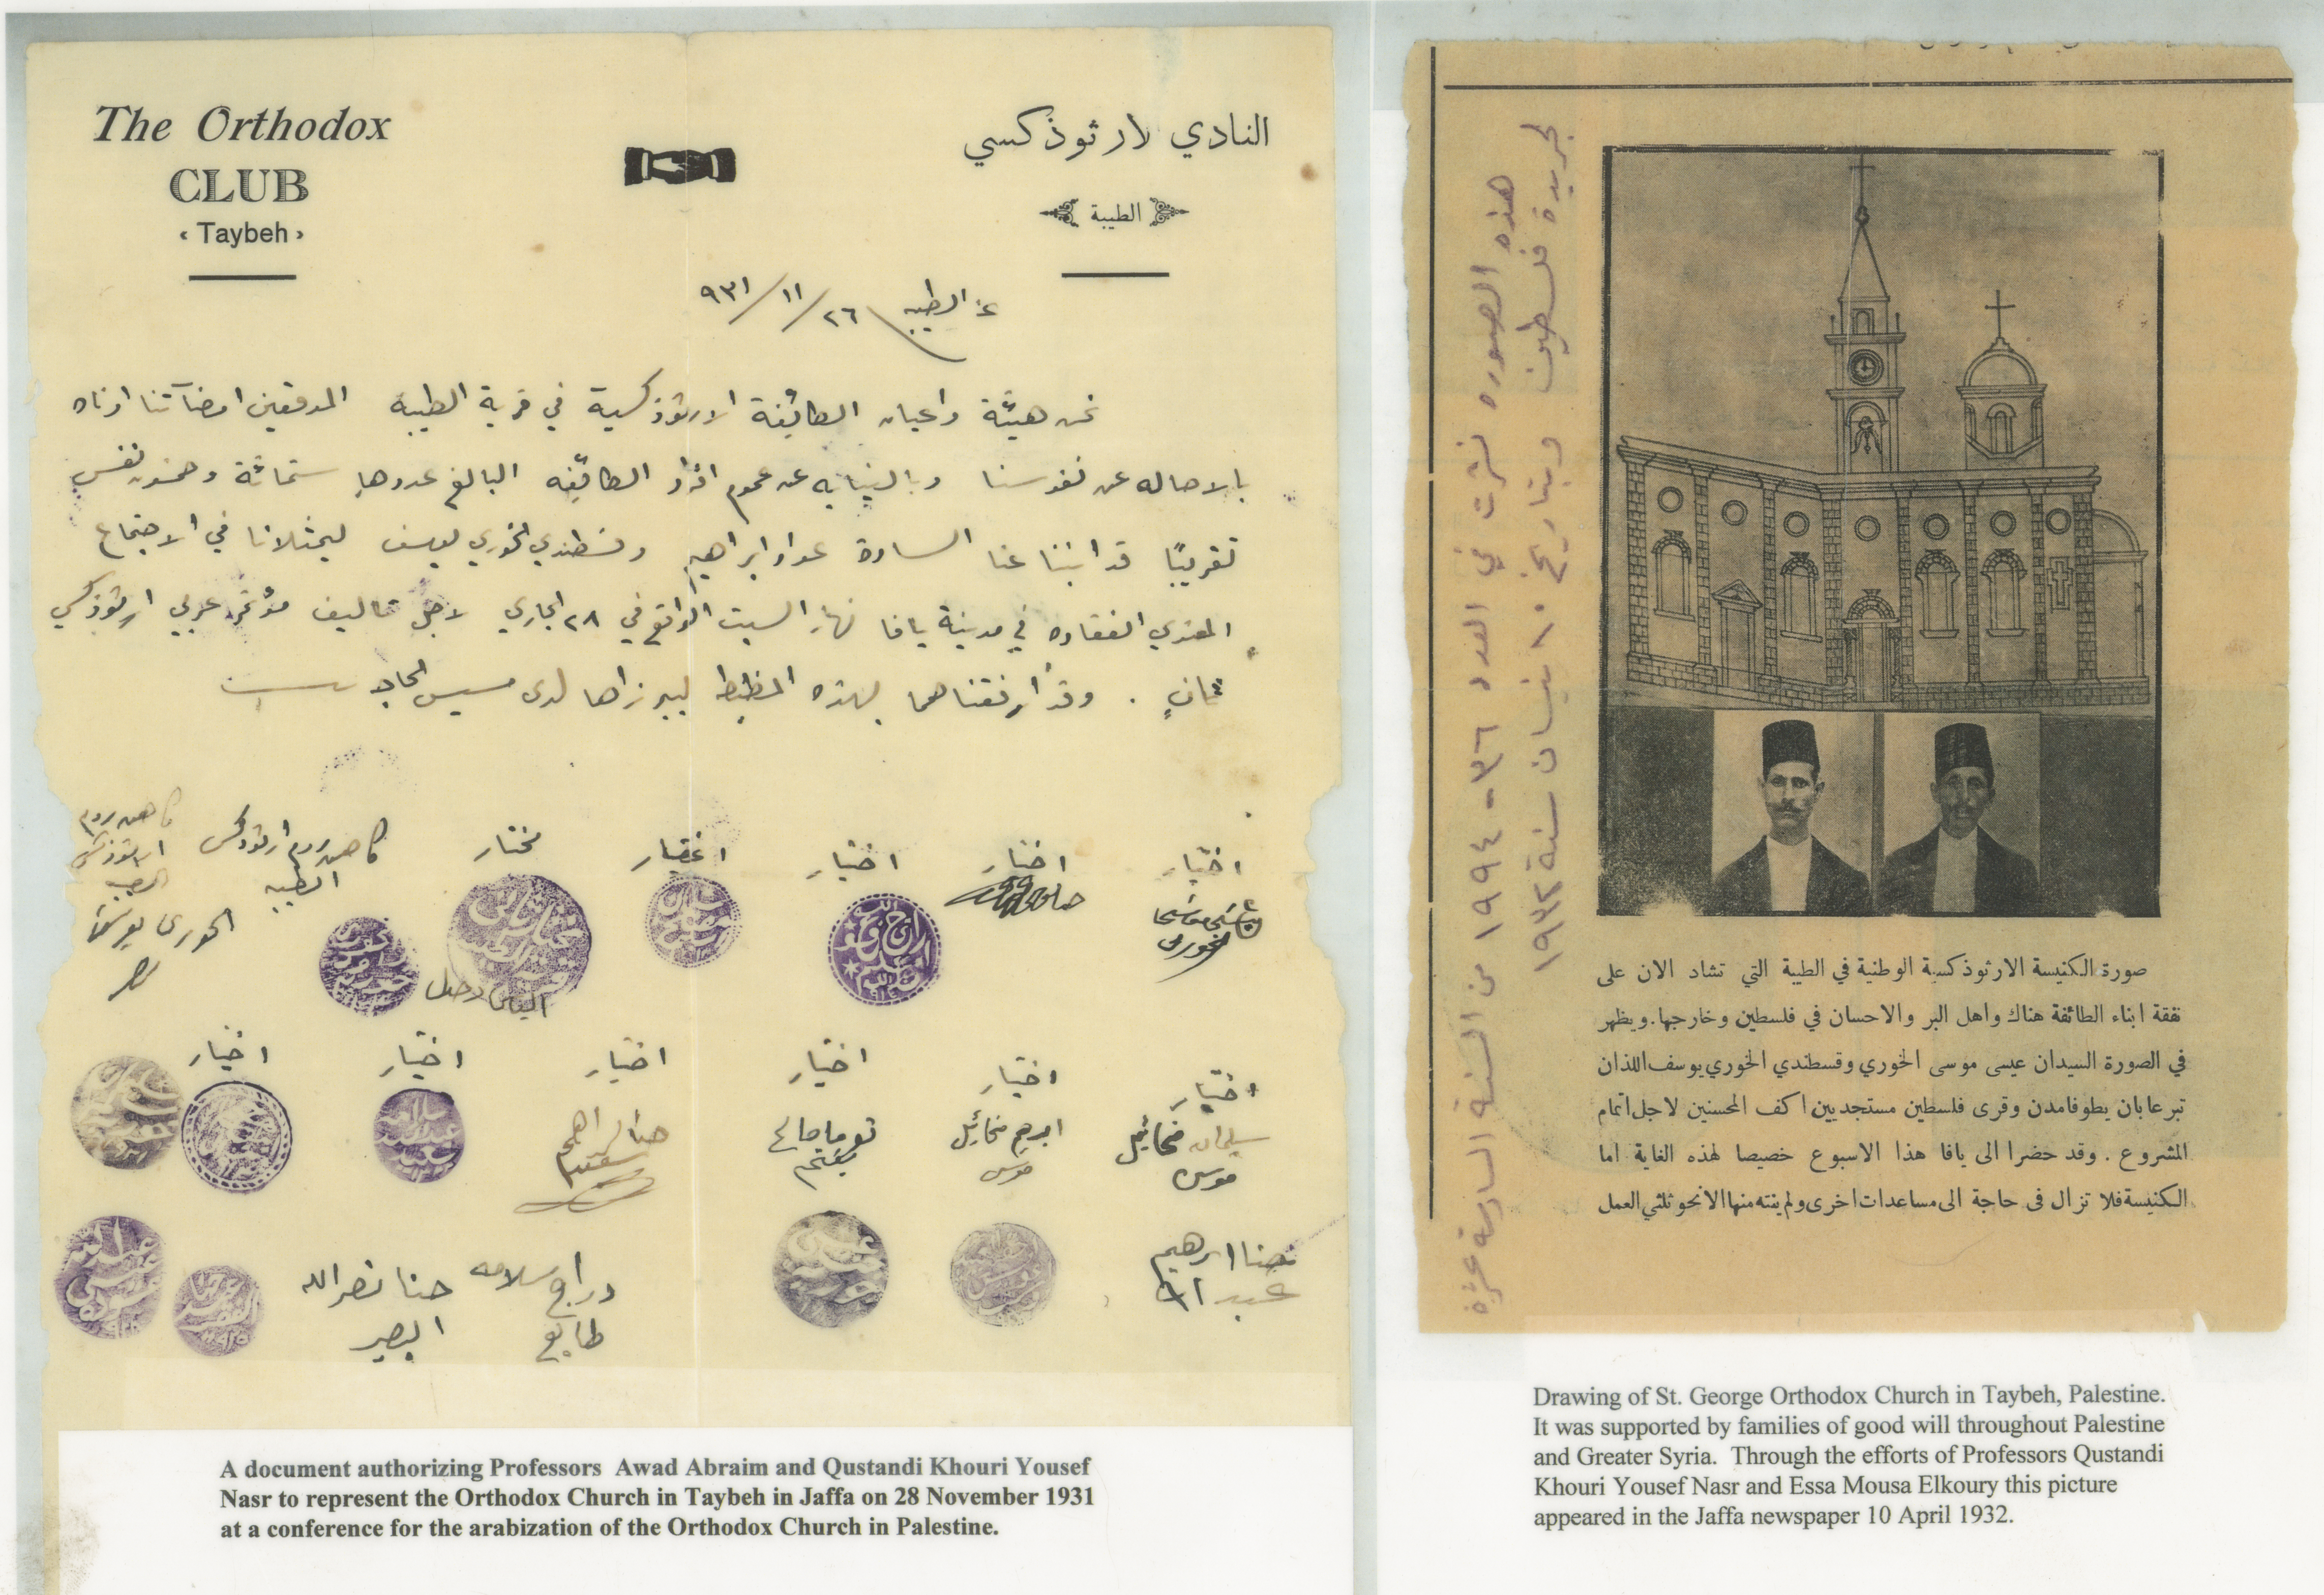 The Orthodox
CLUB
‹ Taybeh ›
النادي لارثوذكسي
الطيبة
عن الطيبه ٢٦/١١/٩٣١
نحن هيئة واعيان الطائفة الارثوذكسية في قرية الطيبه الموقعين امضآتنا ادناه
بالاصاله عن نفوسنا وبالنيابه عن عموم افراد الطائفه البالغ عددها ستماثة وخمسون نفس
تقريبًا قد انبنا عنا السادة عواد ابراهيم وقسطندي الخوري يوسف ليمثلانا في الاجتماع
المنوي انعقاده في مدينة يافا نهار السبت الواقع في ٢٨ الجاري لاجل تاليف مؤتمر عربي ارثوذكسي
ثانٍ . وقد ارفقناهما بهذه المظبطه ليبرزاها لدى مسيس الحاجه
اختيار
اختيار
اختيار
اختيار
مختار
كاهن روم ارثوذكس
الطيبه
كاهن روم
ارثوذكس
الطيبه
الخوري يوسف
نصر
الياس دحبل
اختيار
سليمان مخائيل
موسى
اختيار
ابرهيم مخائيل
موسى
اختيار
توما صالح
اختيار
حنا ابراهيم
اختيار
اختيار
حنا ابرهيم
عبد الله
دراج سلامه
طابع
حنا نصرالله
البصير
A document authorizing Professors Awad Abraim and Qustandi Khouri Yousef
Nasr to represent the Orthodox Church in Taybeh in Jaffa on 28 November 1931
at a conference for the arabization of the Orthodox Church in Palestine.
هذه الصوره نشرت في العدد ٣٦-١٩٩٤ من السنة السادسة عشرة
لجريدة فلسطين وبتاريخ ١٠ نيسان سنة ١٩٣٢
صورة الكنيسة الارثوذكسية الوطنية في الطيبة التي تشاد الان على
نفقة ابناء الطائفة هناك واهل البر والاحسان في فلسطين وخارجها. ويظهر
في الصورة السيدان عيسى موسى الخوري وقسطندي الخوري يوسف اللذان
تبرعا بان يطوفا مدن وقرى فلسطين مستجديين اكف المحسنين لاجل اتمام
المشروع . وقد حضرا الى يافا هذا الاسبوع خصيصا لهذه الغاية اما
الكنيسة فلا تزال في حاجة الى مساعدات اخرى ولم ينته منها الا نحو ثلثي العمل
Drawing of St. George Orthodox Church in Taybeh, Palestine.
It was supported by families of good will throughout Palestine
and Greater Syria. Through the efforts of Professors Qustandi
Khouri Yousef Nasr and Essa Mousa Elkoury this picture
appeared in the Jaffa newspaper 10 April 1932.